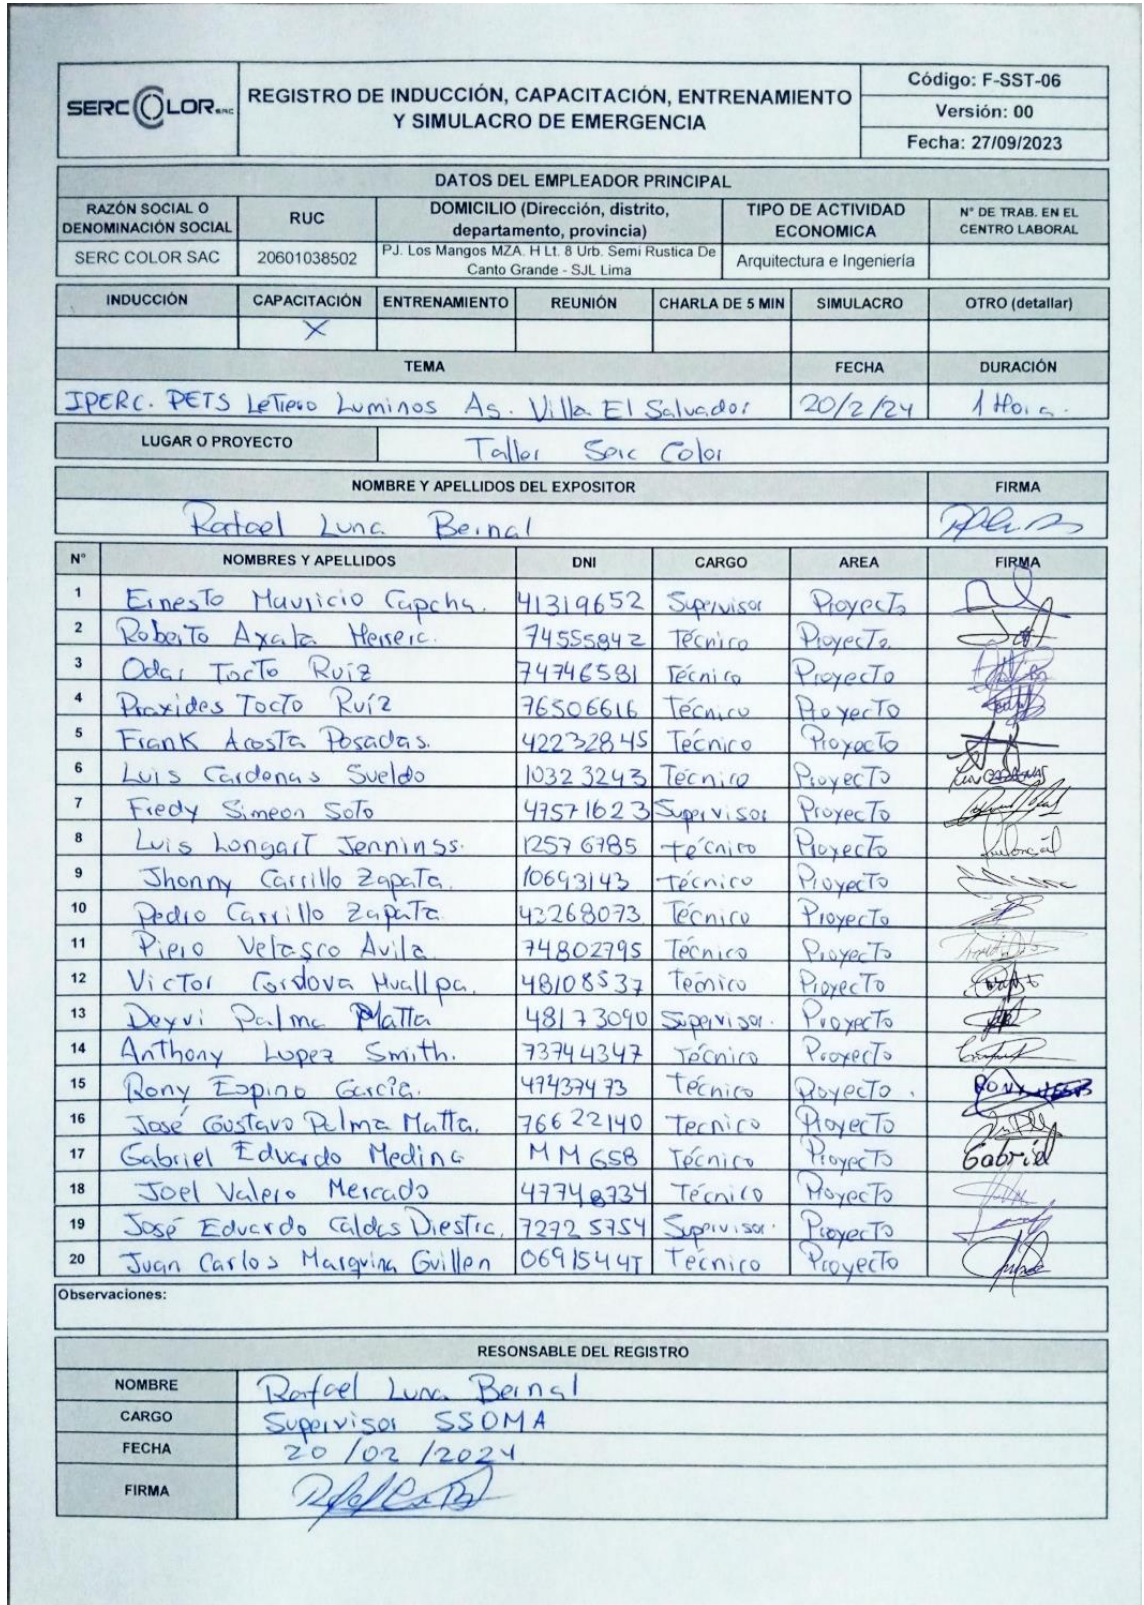 SERC COLOR SAC
REGISTRO DE INDUCCIÓN, CAPACITACIÓN, ENTRENAMIENTO
Y SIMULACRO DE EMERGENCIA
Código: F-SST-06
Versión: 00
Fecha: 27/09/2023
DATOS DEL EMPLEADOR PRINCIPAL
RAZÓN SOCIAL O DENOMINACIÓN SOCIAL RUC DOMICILIO (Dirección, distrito, departamento, provincia) TIPO DE ACTIVIDAD ECONOMICA N° DE TRAB. EN EL CENTRO LABORAL
SERC COLOR SAC 20601038502 PJ. Los Mangos MZA. H Lt. 8 Urb. Semi Rustica De Canto Grande - SJL Lima Arquitectura e Ingeniería
INDUCCIÓN CAPACITACIÓN ENTRENAMIENTO REUNIÓN CHARLA DE 5 MIN SIMULACRO OTRO (detallar)
X
TEMA FECHA DURACIÓN
IPERC. PETS Letrero Luminos Ag. Villa El Salvador 20/2/24 1 Hora.
LUGAR O PROYECTO Taller Serc Color
NOMBRE Y APELLIDOS DEL EXPOSITOR FIRMA
Rafael Luna Bernal
N° NOMBRES Y APELLIDOS DNI CARGO AREA FIRMA
1 Ernesto Mauricio Capcha. 41319652 Supervisor Proyecto
2 Roberto Ayala Herrera. 74555842 Técnico Proyecto.
3 Odar Tocto Ruiz 74746581 Técnico Proyecto
4 Praxides Tocto Ruíz 76506616 Técnico Proyecto
5 Frank Acosta Posadas. 42232845 Técnico Proyecto
6 Luis Cardenas Sueldo 10323243 Técnico Proyecto
7 Fredy Simeon Soto 47571623 Supervisor Proyecto
8 Luis Longart Jenninss. 12576785 técnico Proyecto
9 Jhonny Carrillo Zapata. 10693143 técnico Proyecto
10 Pedro Carrillo Zapata. 43268073. Técnico Proyecto
11 Piero Velasco Avila 74802795 Técnico Proyecto
12 Victor Cordova Huallpa. 48108537 Técnico Proyecto
13 Deyvi Palma Matta 48173090 Supervisor. Proyecto
14 Anthony Lopez Smith. 73744347 Técnico Proyecto
15 Rony Espino García. 47437473 técnico Proyecto.
16 José Gustavo Palma Matta. 76622140 Tecnico Proyecto
17 Gabriel Eduardo Medina Técnico Proyecto Gabriel
18 Joel Valero Mercado 47748734 Técnico Proyecto
19 José Eduardo Caldas Diestra. 72725754 Supervisor. Proyecto
20 Juan Carlos Marquina Guillen Técnico Proyecto
Observaciones:
RESONSABLE DEL REGISTRO
NOMBRE Rafael Luna Bernal
CARGO Supervisor SSOMA
FECHA 20/02/2024
FIRMA